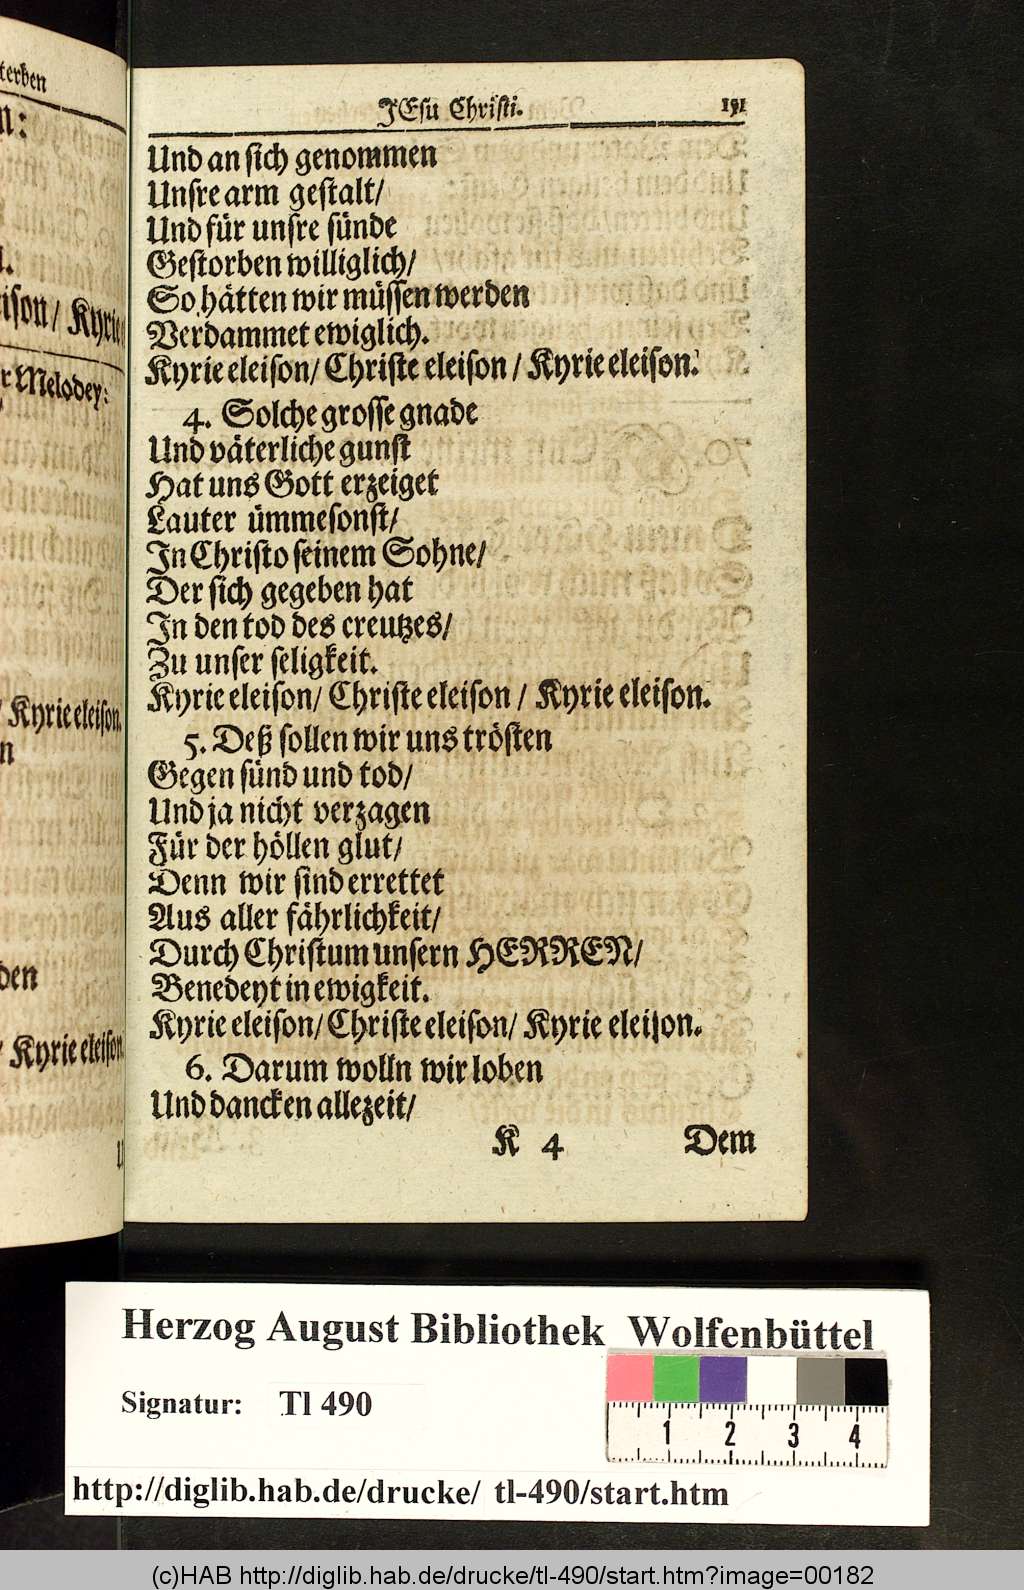 terben
n:
eison/ Kyrie
r Melodey:
/ Kyrie eleison.
n
den
/ Kyrie eleison.
JEsu Christi. 151
Und an sich genommen
Unsre arm gestalt/
Und für unsre sünde
Gestorben williglich/
So hätten wir müssen werden
Verdammet ewiglich.
Kyrie eleison/ Christe eleison / Kyrie eleison.
4. Solche grosse gnade
Und väterliche gunst
Hat uns Gott erzeiget
Lauter ümmesonst/
In Christo seinem Sohne/
Der sich gegeben hat
In den tod des creutzes/
Zu unser seligkeit.
Kyrie eleison/ Christe eleison / Kyrie eleison.
5. Deß sollen wir uns trösten
Gegen sünd und tod/
Und ja nicht verzagen
Für der höllen glut/
Denn wir sind errettet
Aus aller fährlichkeit/
Durch Christum unsern HERREN/
Benedeyt in ewigkeit.
Kyrie eleison/ Christe eleison/ Kyrie eleison.
6. Darum wolln wir loben
Und dancken allezeit/
K 4 Dem
Herzog August Bibliothek Wolfenbüttel
Signatur: Tl 490
1 2 3 4
http://diglib.hab.de/drucke/ tl-490/start.htm
(c)HAB http://diglib.hab.de/drucke/tl-490/start.htm?image=00182